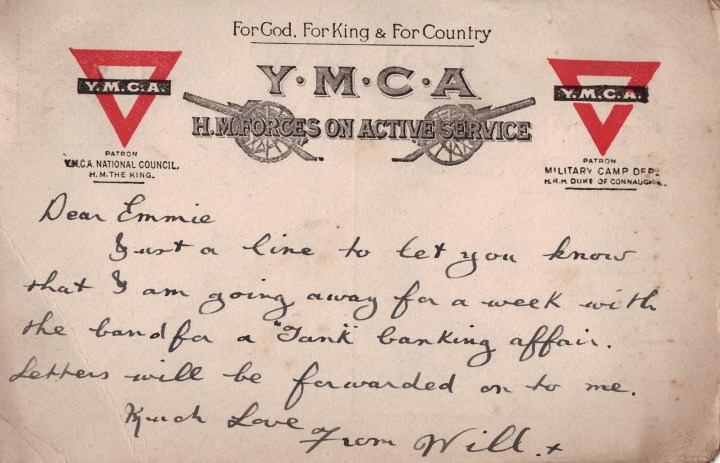 For God, For King & For Country
Y·M·C·A
H.M. FORCES ON ACTIVE SERVICE
Y.M.C.A.
PATRON
Y.M.C.A. NATIONAL COUNCIL.
H.M. THE KING.
Y.M.C.A.
PATRON
MILITARY CAMP DEPT.
H.R.H. DUKE OF CONNAUGHT.
Dear Emmie
Just a line to let you know
that I am going away for a week with
the band for a "Tank" banking affair.
Letters will be forwarded on to me.
Much Love
From Will. x